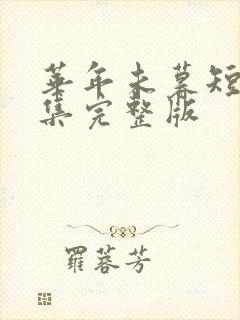 华年未暮短
集完整版
罗蓉芳